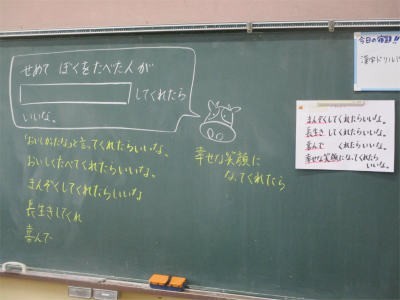 せめて ぼくをたべた人が
してくれたら
いいな。
「おいしかったな」と言ってくれたらいいな。
おいしくたべてくれたらいいな。
まんぞくしてくれたらいいな
長生きしてくれ
喜んで
幸せな笑顔に
なってくれたら
今日の宿題!!
漢字ドリル
まんぞくしてくれたらいいな。
長生きしてくれたらいいな。
喜んで くれたらいいな。
幸せな笑顔になってくれたら
いいな。